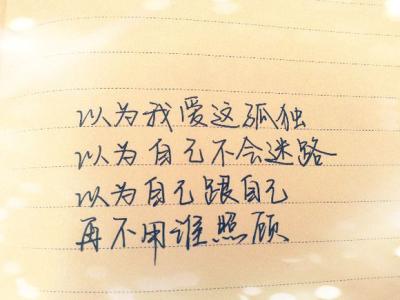 以为我爱这孤独
以为自己不会迷路
以为自己跟自己
再不用谁照顾